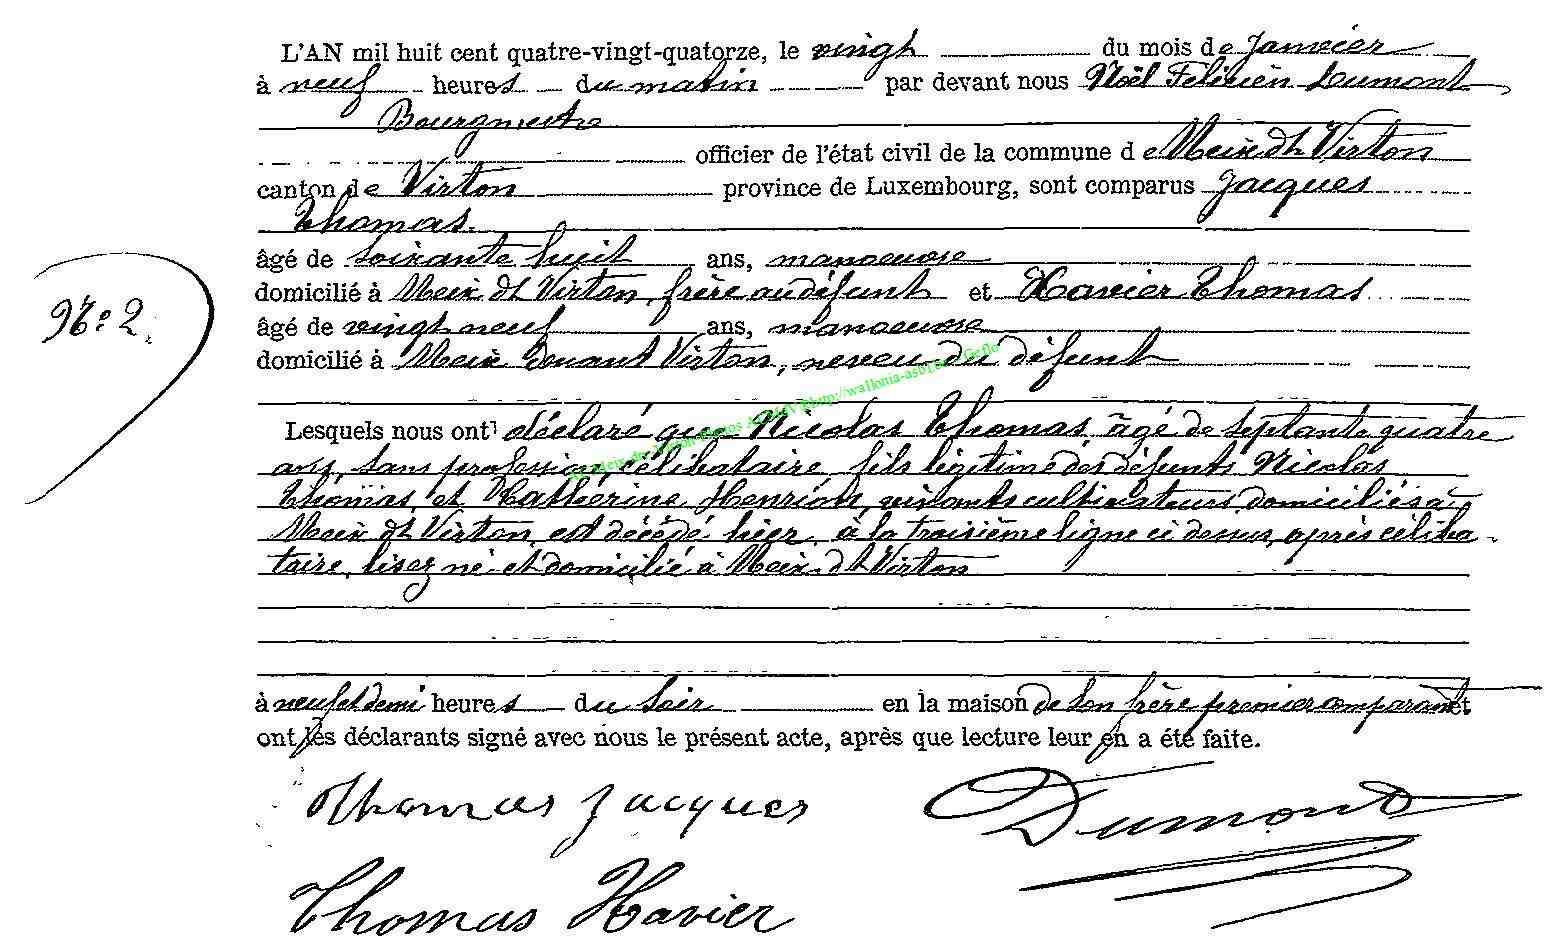 L'AN mil huit cent quatre-vingt-quatorze, le vingt du mois de Janvier
à neuf heures du matin par devant nous Noël Félicien Dumont
Bourgmestre
officier de l'état civil de la commune de Meix dt Virton
canton de Virton province de Luxembourg, sont comparus Jacques
Thomas.
âgé de soixante huit ans, manoeuvre
domicilié à Meix dt Virton, frère au défunt et Xavier Thomas
âgé de vingt neuf ans, manoeuvre
domicilié à Meix devant Virton, neveu du défunt
N.º 2.
Lesquels nous ont déclaré que Nicolas Thomas, âgé de septante quatre
ans, sans profession, célibataire, fils légitime des défunts Nicolas
Thomas, et Cathérine Henrion, vivants cultivateurs domiciliés à
Meix dt Virton, est décédé hier, à la troisième ligne ci dessus, après céliba-
taire, lisez né et domicilié à Meix dt Virton
à neuf et demi heures du soir en la maison de son frère premier comparant et
ont les déclarants signé avec nous le présent acte, après que lecture leur en a été faite.
Thomas Jacques Dumont
Thomas Xavier